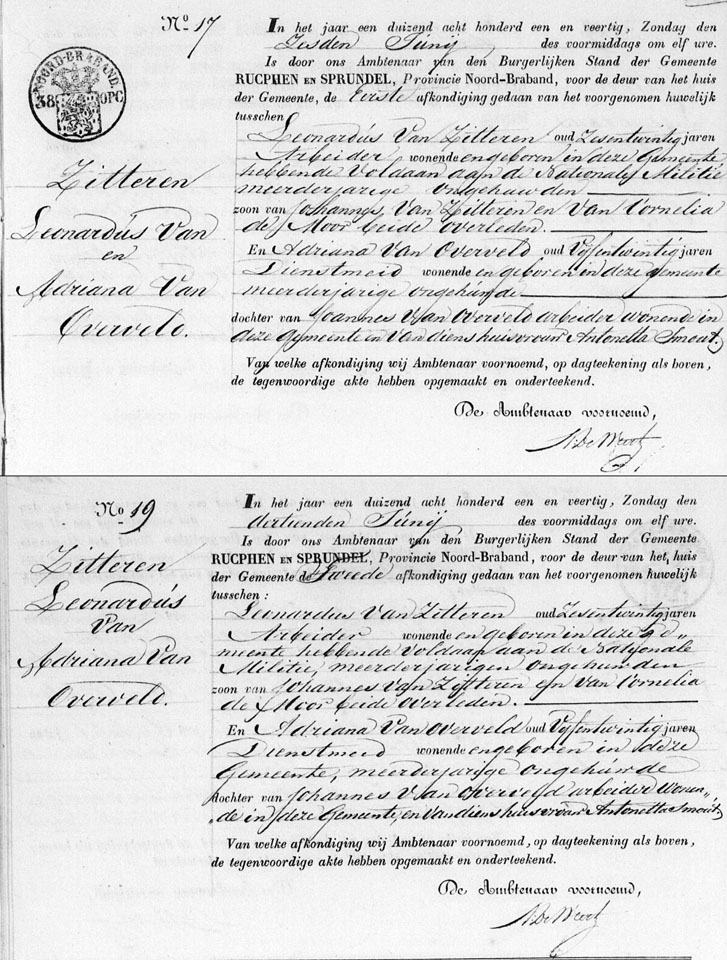 No 17
NOORD-BRABAND
38 OPC
Zitteren
Leonardús Van
en
Adriana Van
Overveld.
In het jaar een duizend acht honderd een en veertig, Zondag den
Zesden Júnij des voormiddags om elf ure.
Is door ons Ambtenaar van den Burgerlijken Stand der Gemeente
RUCPHEN EN SPRUNDEL, Provincie Noord-Braband, voor de deur van het huis
der Gemeente, de Eerste afkondiging gedaan van het voorgenomen huwelijk
tusschen
Leonardús Van Zitteren oud Zesentwintig jaren
Arbeider wonende en geboren in deze Gemeente
hebbende Voldaan aan de Nationale Militie
meerderjarige ongehuwden
zoon van Johannes Van Zitteren en Van Cornelia
de Moor beide overleden.
En Adriana Van Overveld oud Vijfentwintig jaren
Dienstmeid wonende en geboren in deze gemeente
meerderjarige ongehúwde
dochter van Joannes Van Overveld arbeider wonende in
deze Gemeente en Van diens huisvrouw Antonetta Smout.
Van welke afkondiging wij Ambtenaar voornoemd, op dagteekening als boven,
de tegenwoordige akte hebben opgemaakt en onderteekend.
De Ambtenaar voornoemd,
No 19
Zitteren
Leonardús
Van
Adriana Van
Overveld.
In het jaar een duizend acht honderd een en veertig, Zondag den
dertienden Júnij des voormiddags om elf ure.
Is door ons Ambtenaar van den Burgerlijken Stand der Gemeente
RUCPHEN EN SPRUNDEL, Provincie Noord-Braband, voor de deur van het huis
der Gemeente de Tweede afkondiging gedaan van het voorgenomen huwelijk
tusschen:
Leonardus Van Zitteren oud Zesentwintig jaren
Arbeider wonende en geboren in deze Ge„
meente hebbende Voldaan aan de Nationale
Militie, meerderjarigen ongehuwden
zoon van Johannes Van Zitteren en Van Cornelia
de Moor beide overleden.
En Adriana Van Overveld oud Vijfentwintig jaren
Dienstmeid wonende en geboren in deze
Gemeente, meerderjarige ongehúwde
dochter van Johannes Van Overveld arbeider Wonen„
„de in deze Gemeente, en Van diens huisvrouw Antonetta Smout
Van welke afkondiging wij Ambtenaar voornoemd, op dagteekening als boven,
de tegenwoordige akte hebben opgemaakt en onderteekend.
De Ambtenaar voornoemd,